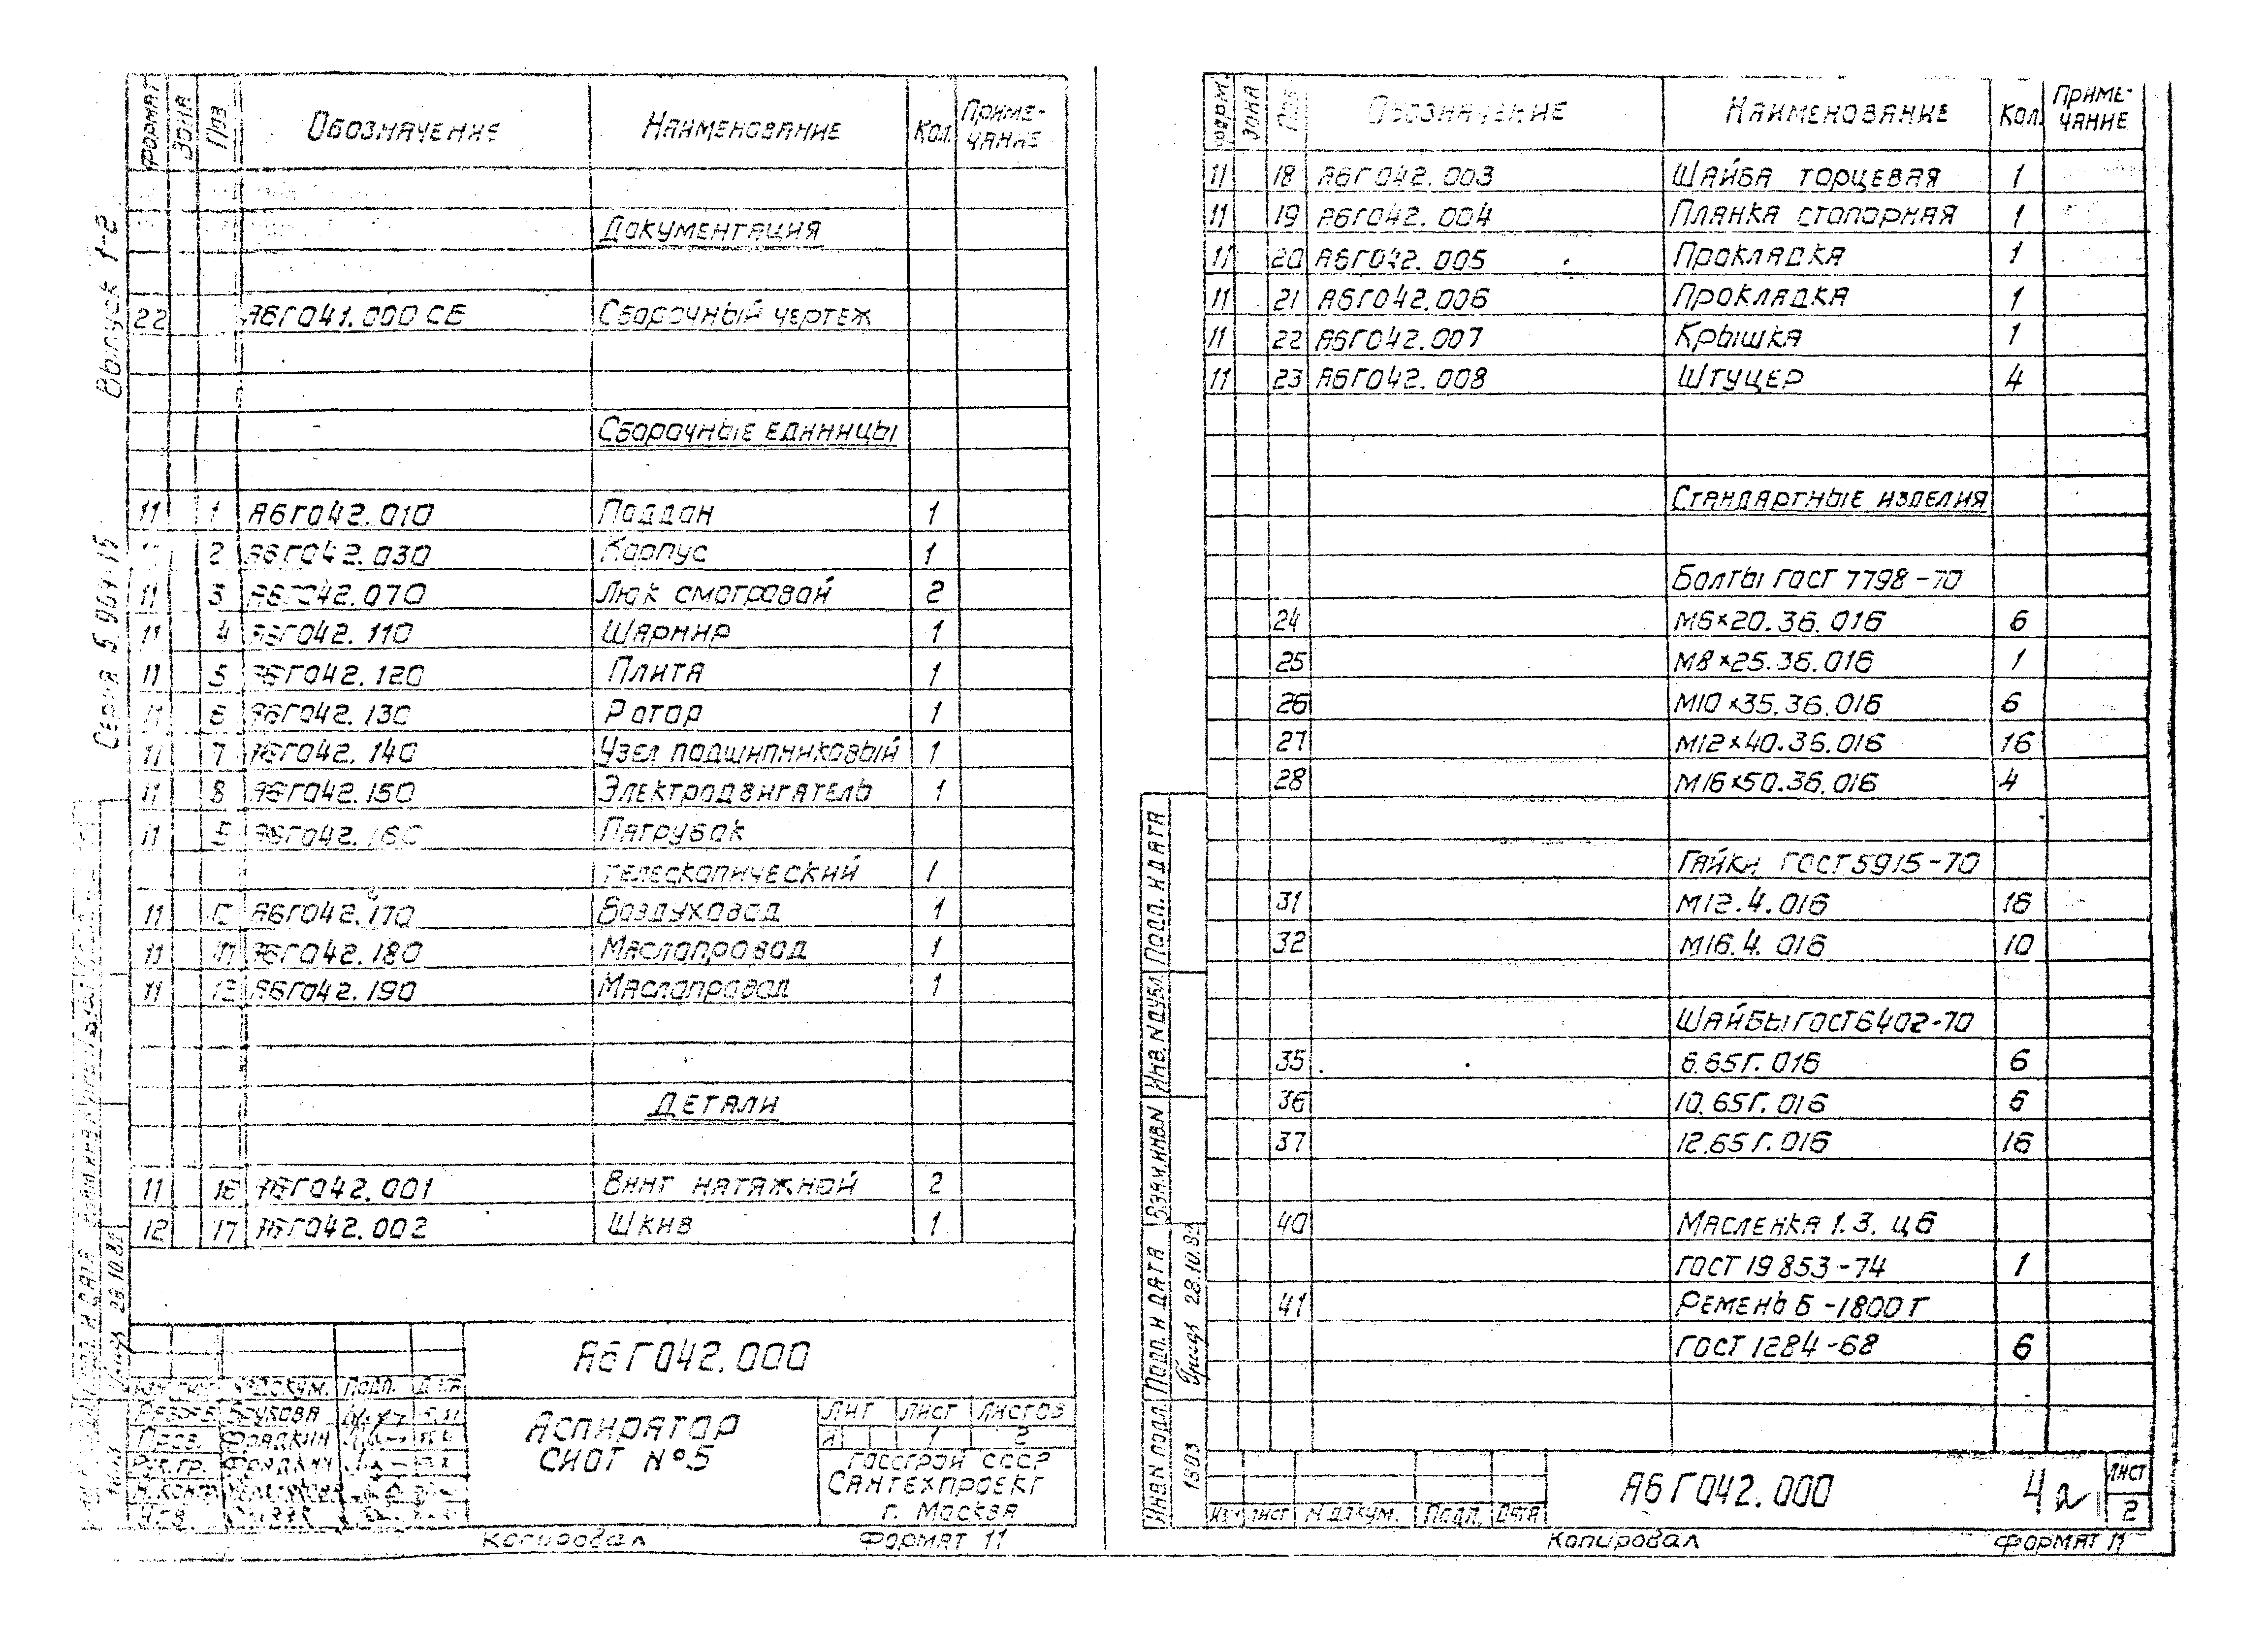 Серия 5.904-15 Выпуск 1-2
ФОРМАТ ЗОНА Поз ОБОЗНАЧЕНИЕ НАИМЕНОВАНИЕ Кол. ПРИМЕ-
ЧАНИЕ
Документация
22 А6Г041.000 СБ Сборочный чертеж
Сборочные единицы
11 1 А6Г042.010 Поддон 1
2 А6Г042.030 Корпус 1
11 3 А6Г042.070 Люк смотровой 2
11 4 А6Г042.110 Шарнир 1
11 5 А6Г042.120 Плита 1
11 6 А6Г042.130 Ротор 1
11 7 А6Г042.140 Узел подшипниковый 1
11 8 А6Г042.150 Электродвигатель 1
11 А6Г042.160 Патрубок
телескопический 1
11 А6Г042.170 Воздуховод 1
11 11 А6Г042.180 Маслопровод 1
11 12 А6Г042.190 Маслопровод 1
Детали
11 16 А6Г042.001 Винт натяжной 2
12 17 А6Г042.002 Шкив 1
А6Г042.000
№ ДОКУМ. ПОДП. ДАТА
Разраб. Брукова
Пров. Фрадкин
Рук.гр. Фрадкин
Н.контр
АСПИРАТОР
СИОТ №5
ЛИТ ЛИСТ ЛИСТОВ
1 2
ГОССТРОЙ СССР
САНТЕХПРОЕКТ
г. Москва
Копировал ФОРМАТ 11
28.10.81
ФОРМ. ЗОНА Поз ОБОЗНАЧЕНИЕ НАИМЕНОВАНИЕ Кол. ПРИМЕ-
ЧАНИЕ
11 18 А6Г042.003 Шайба торцевая 1
11 19 А6Г042.004 Планка стопорная 1
11 20 А6Г042.005 Прокладка 1
11 21 А6Г042.006 Прокладка 1
11 22 А6Г042.007 Крышка 1
11 23 А6Г042.008 Штуцер 4
Стандартные изделия
Болты ГОСТ 7798-70
24 М6×20.36.016 6
25 М8×25.36.016 1
26 М10×35.36.016 6
27 М12×40.36.016 16
28 М16×50.36.016 4
Гайки ГОСТ 5915-70
31 М12.4.016 16
32 М16.4.016 10
Шайбы ГОСТ 6402-70
35 6.65Г.016 6
36 10.65Г.016 6
37 12.65Г.016 16
40 Масленка 1.3.Ц6
ГОСТ 19853-74 1
41 Ремень Б-1800Т
ГОСТ 1284-68 6
ИНВ.N ПОДЛ. ПОДП. И ДАТА ВЗАМ.ИНВ.N ИНВ.N ДУБЛ. ПОДП. И ДАТА
28.10.81
ИЗМ ЛИСТ N ДОКУМ. ПОДП. ДАТА
А6Г042.000
ЛИСТ
2
Копировал ФОРМАТ 11